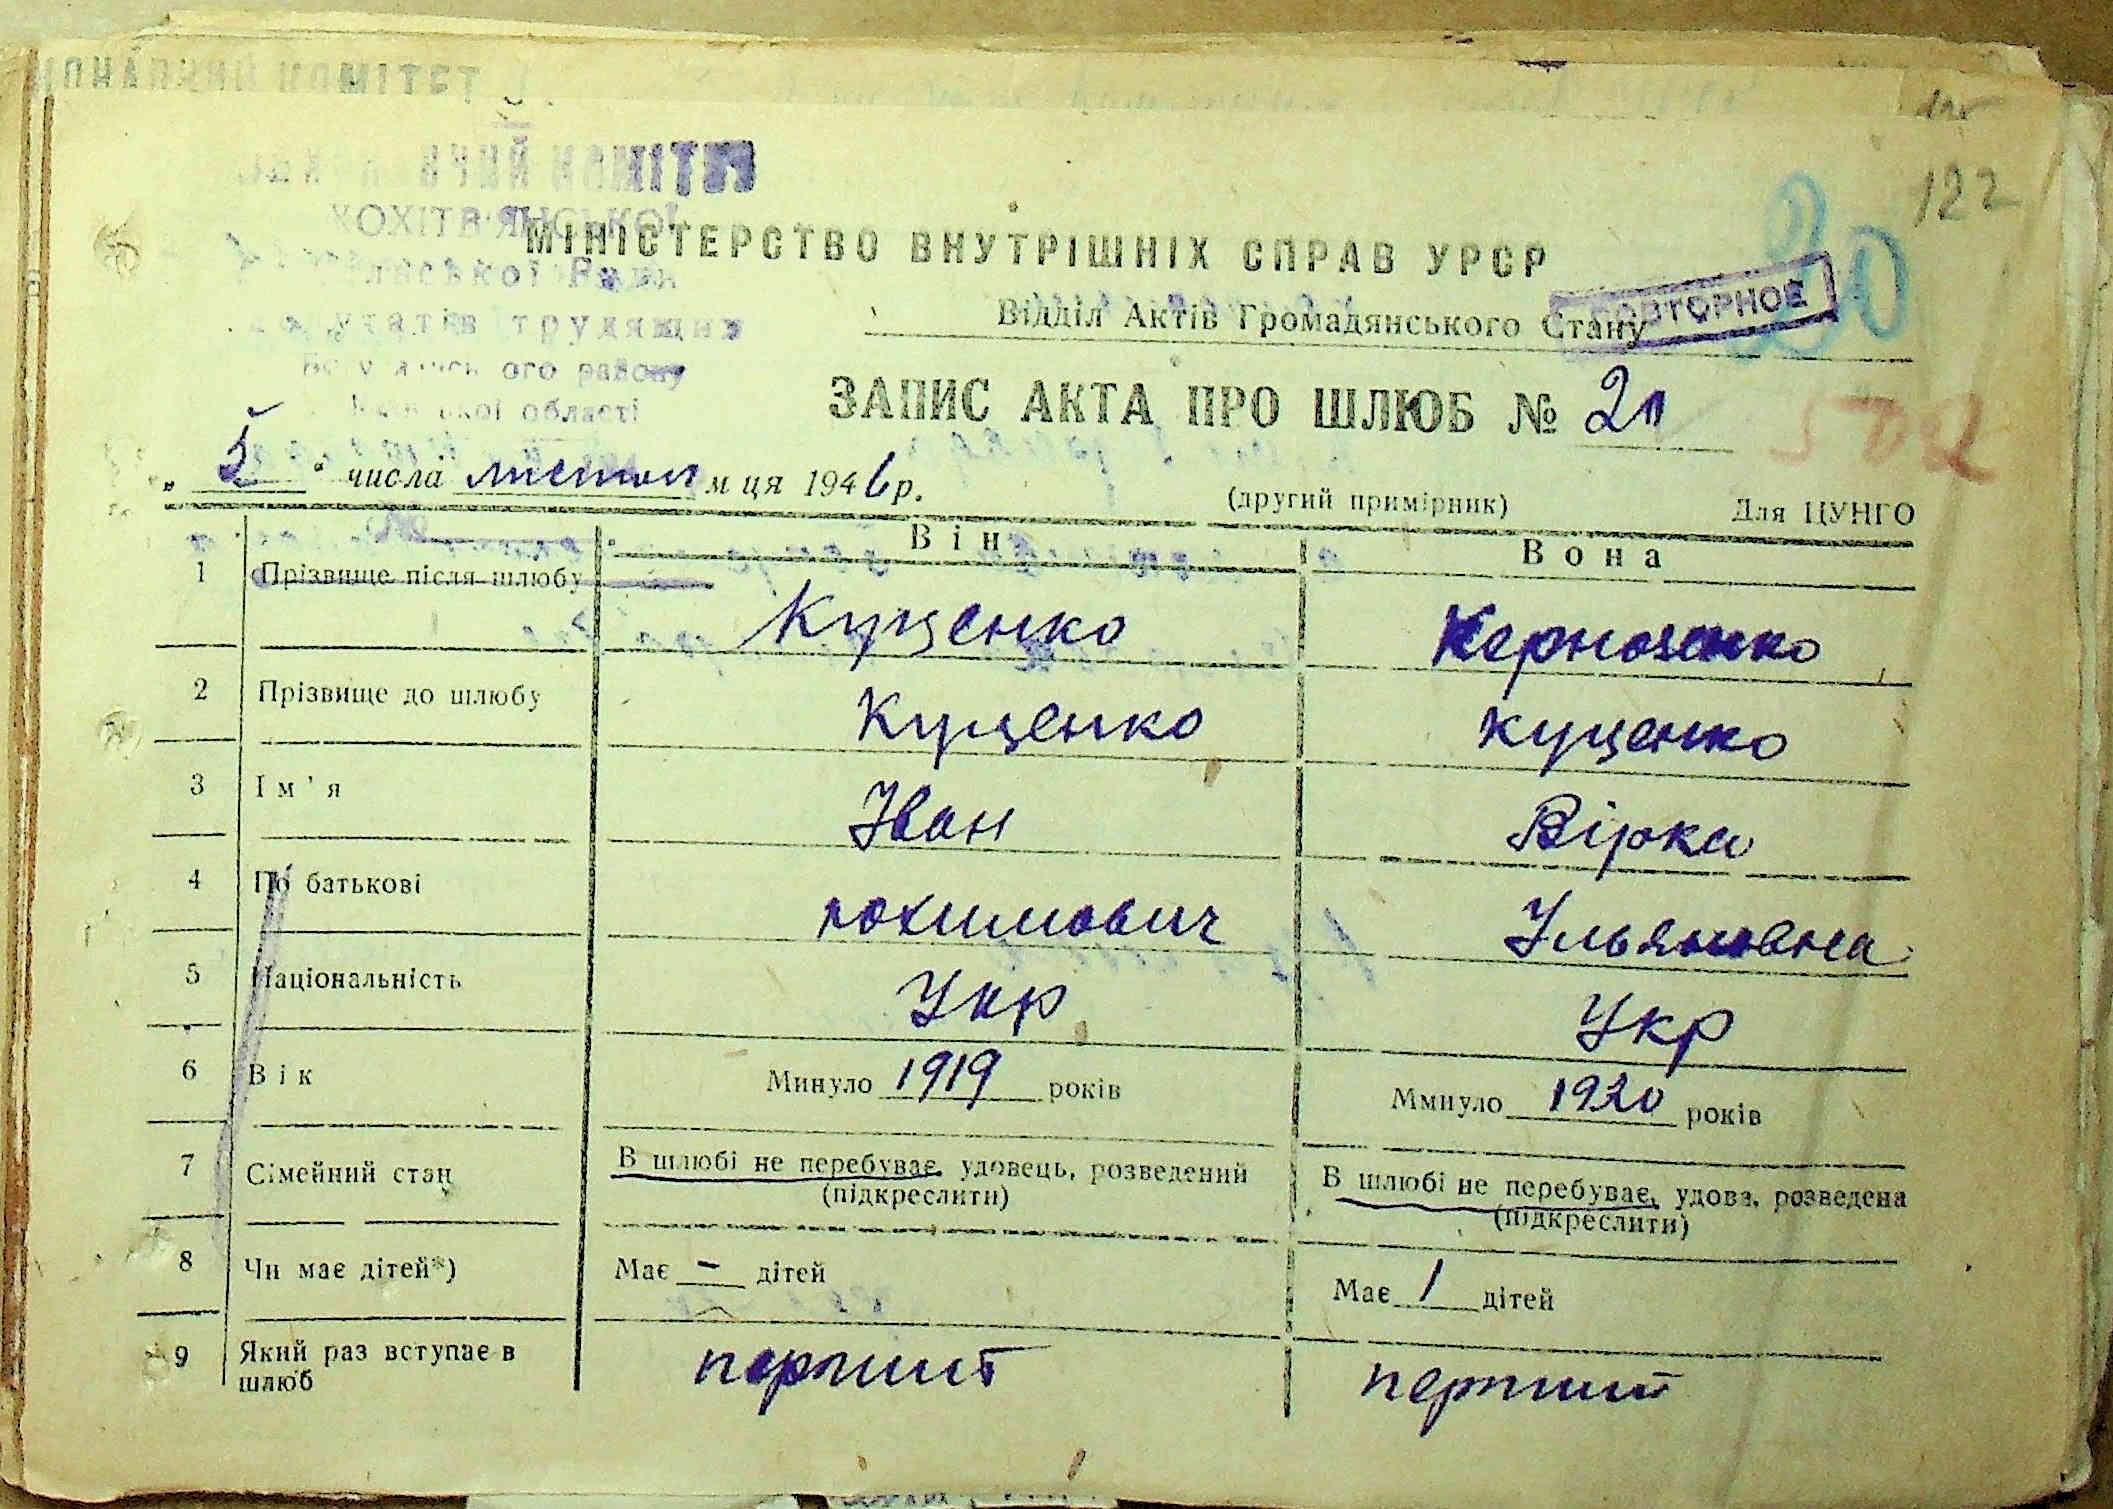 КОМІТЕТ
122
ХОХІТВЯНСЬКОЇ
МІНІСТЕРСТВО ВНУТРІШНІХ СПРАВ УРСР
трудящих
Відділ Актів Громадянського Стану
ПОВТОРНОЕ
80
ого району
області
ЗАПИС АКТА ПРО ШЛЮБ №
„ 5 " числа листоп м ця 1946 р.
(другий примірник)
Для ЦУНГО
Він Вона
1 Прізвище після шлюбу Куценко
2 Прізвище до шлюбу Куценко Куценко
3 Ім'я Іван Вірка
4 По батькові Юхимович Ульяновна
5 Національність Укр Укр
6 Вік Минуло 1919 років Ммнуло 1920 років
7 Сімейний стан В шлюбі не перебуває, удовець, розведений В шлюбі не перебуває, удова, розведена
(підкреслити) (підкреслити)
8 Чи має дітей*) Має - дітей Має 1 дітей
9 Який раз вступає в перший перший
шлюб